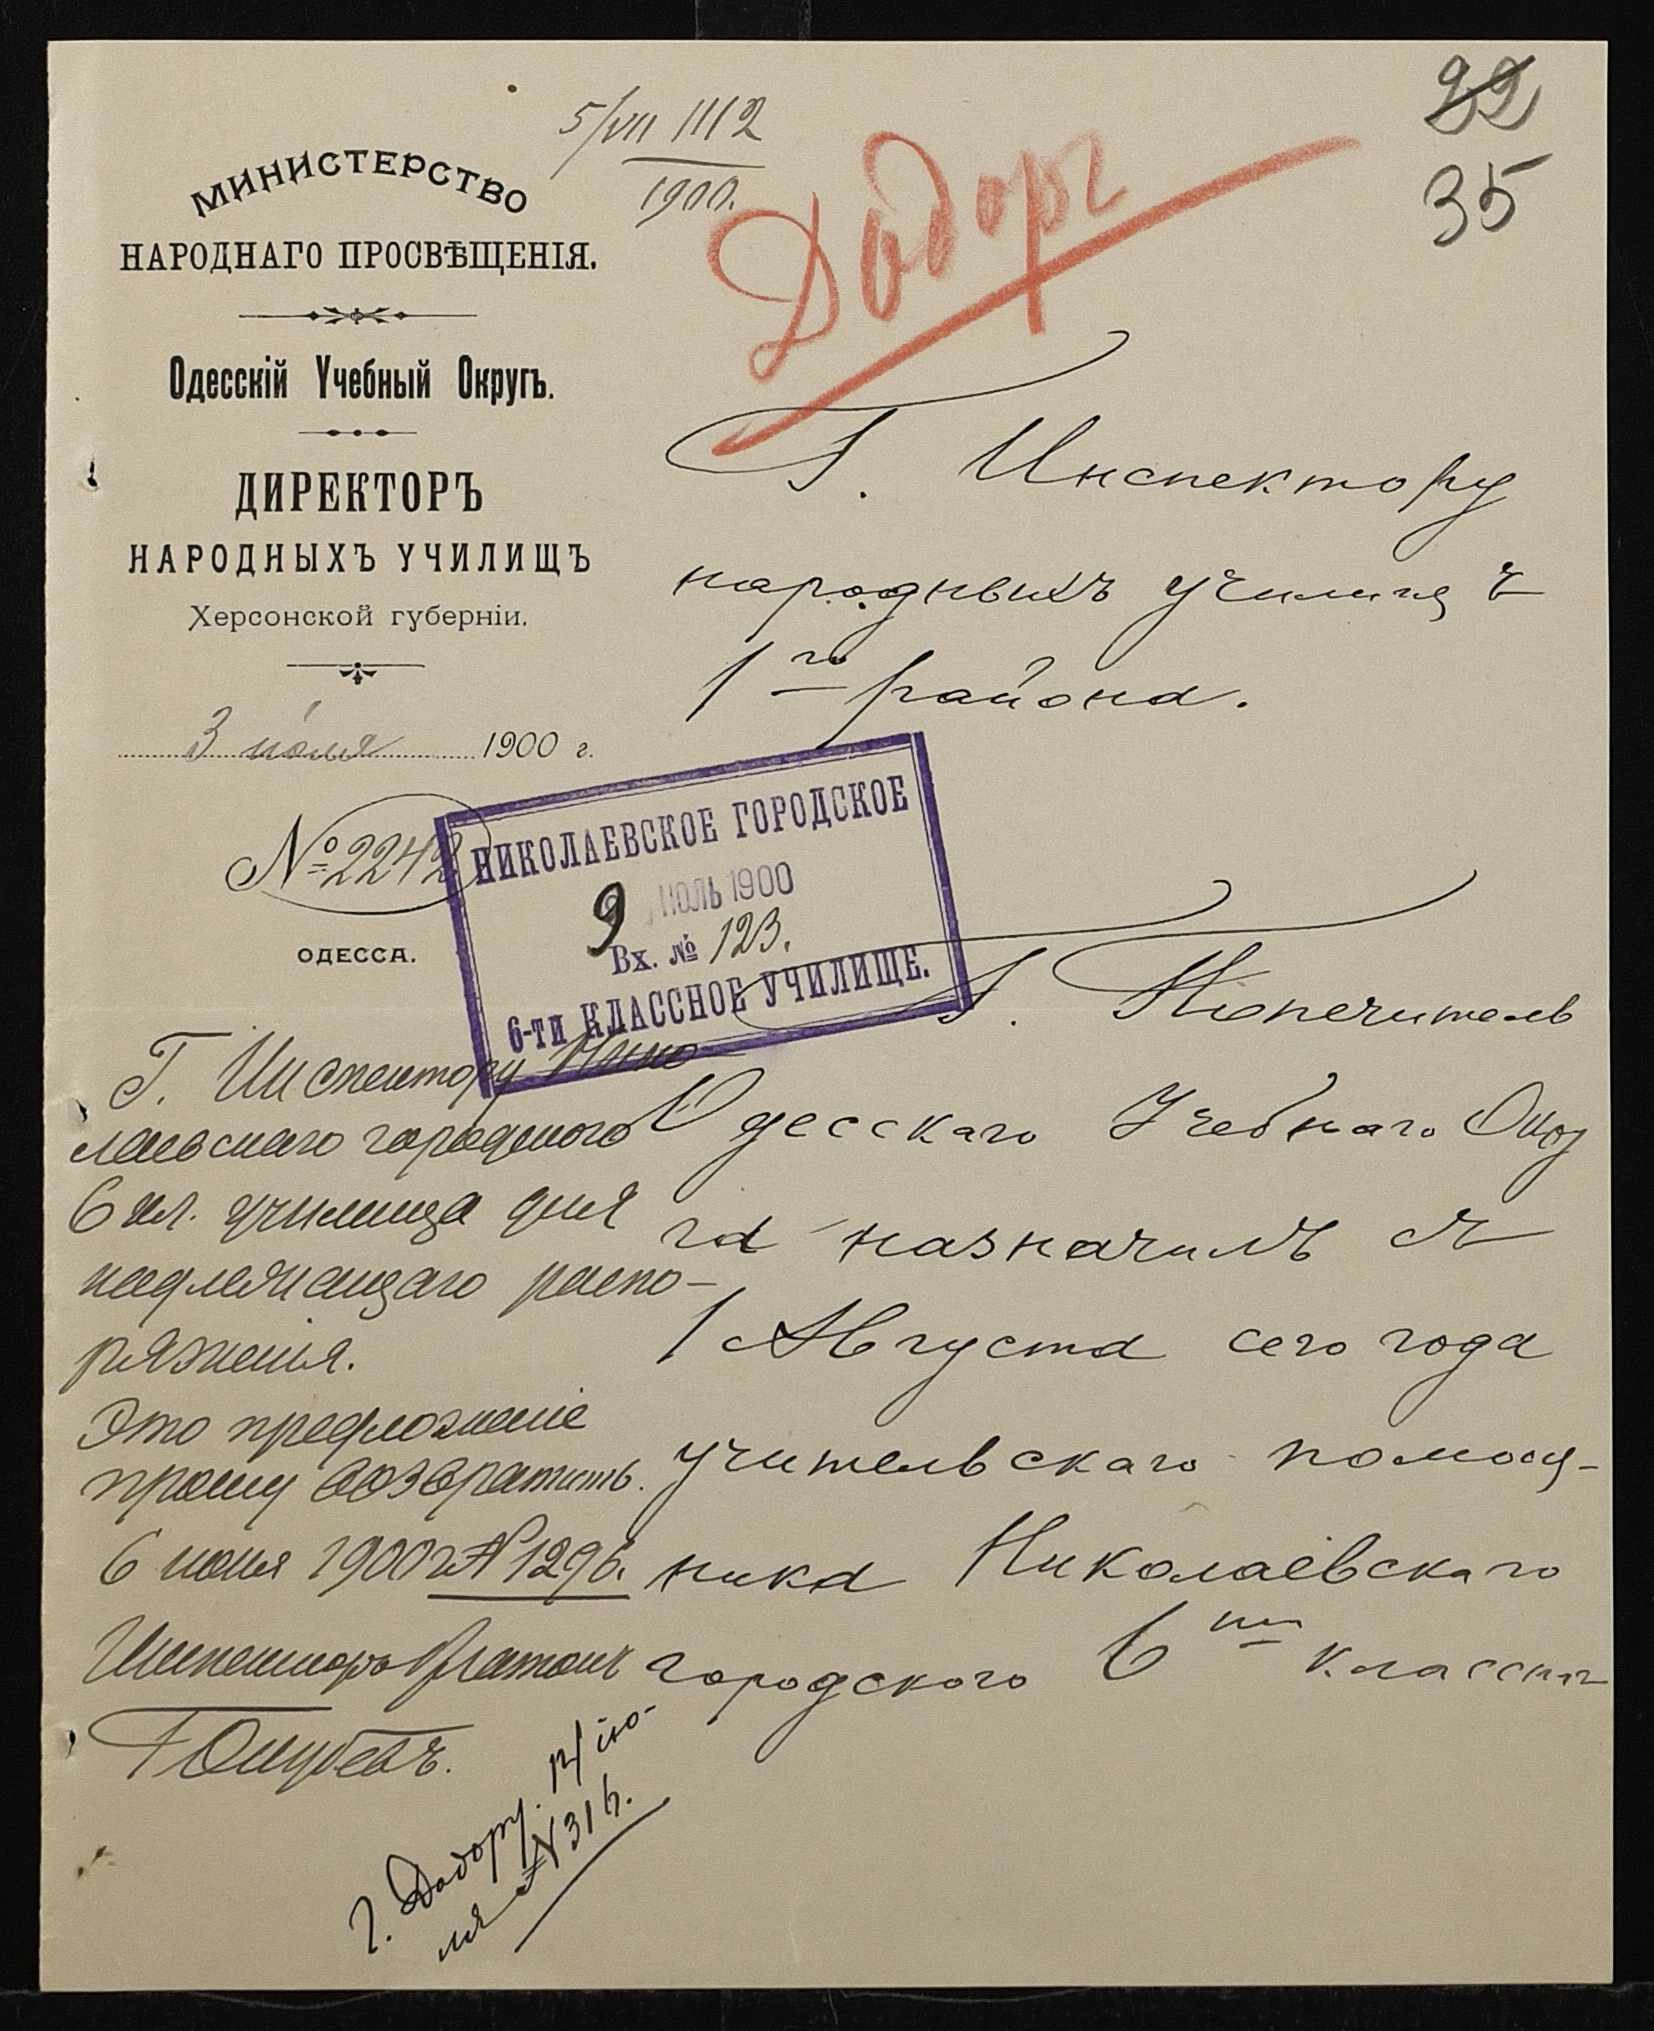 22
35
5/VII 1112
1900.
Додоръ
МИНИСТЕРСТВО
НАРОДНАГО ПРОСВѢЩЕНІЯ.
Одесскій Учебный Округъ.
ДИРЕКТОРЪ
НАРОДНЫХЪ УЧИЛИЩЪ
Херсонской губерніи.
3 іюля 1900 г.
№ 2242
ОДЕССА.
Г. Инспектору
народныхъ училищъ
1го района.
НИКОЛАЕВСКОЕ ГОРОДСКОЕ
9 ИЮЛЬ 1900
Вх. № 123.
6-ти КЛАССНОЕ УЧИЛИЩЕ.
Г. Попечитель
Одесскаго Учебнаго Окру
га назначилъ съ
1 Августа сего года
учительскаго помощ-
ника Николаевскаго
городского 6ти классн
Г. Инспектору Нико-
лаевскаго городского
6 кл. училища для
надлежащаго распо-
ряженія.
Это предложеніе
прошу возвратить.
6 іюля 1900 г. № 1296.
Инспекторъ
г. Додору. ію-
ля № 316.